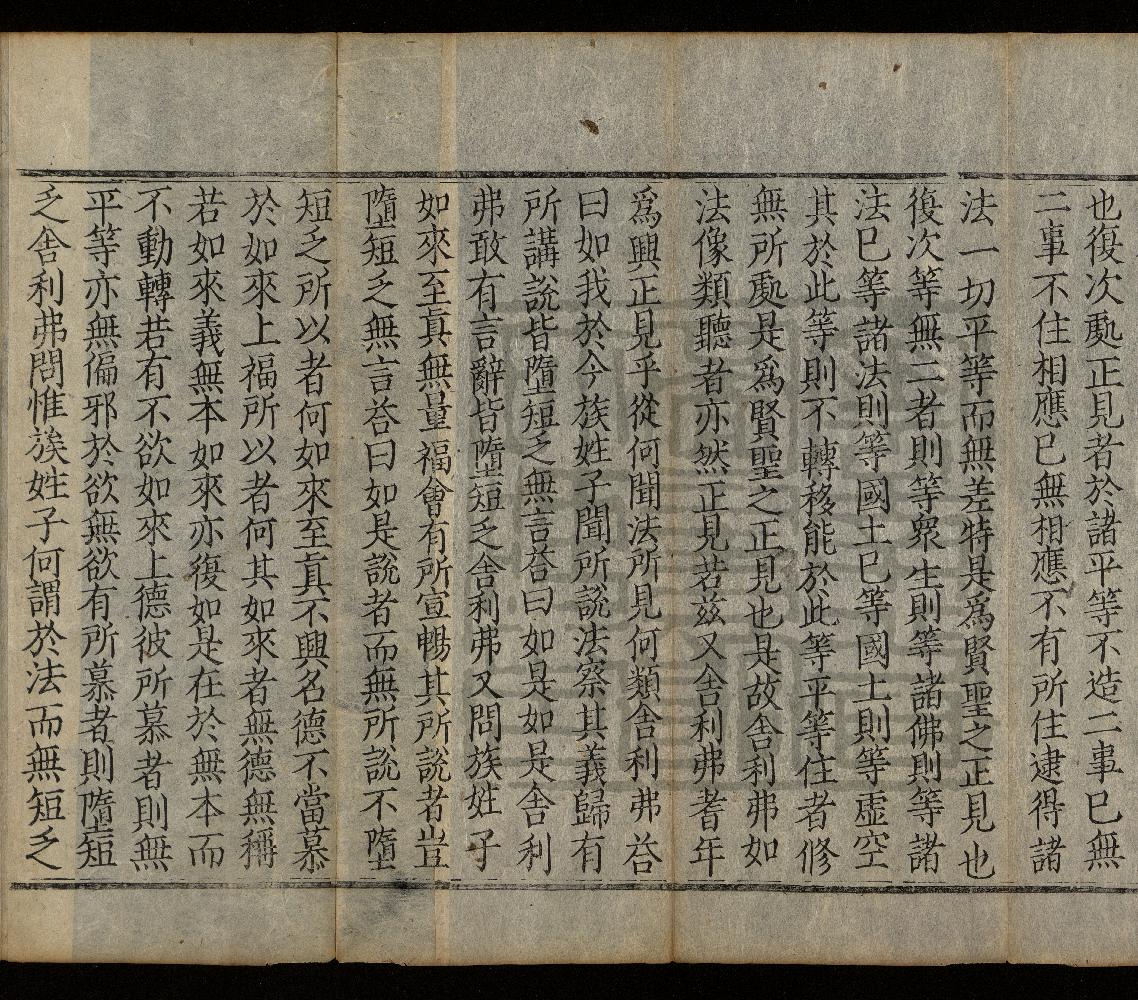 也復次處正見者於諸平等不造二事已無
二事不住相應已無相應不有所住逮得諸
法一切平等而無差特是爲賢聖之正見也
復次等無二者則等衆生則等諸佛則等諸
法已等諸法則等國土已等國土則等虛空
其於此等則不轉移能於此等平等住者修
無所處是爲賢聖之正見也是故舍利弗如
法像類聽者亦然正見若兹又舍利弗耆年
爲興正見乎從何聞法所見何類舍利弗荅
曰如我於今族姓子聞所說法察其義歸有
所講說皆墮短乏無言荅曰如是如是舍利
弗敢有言辭皆墮短乏舍利弗又問族姓子
如來至眞無量福會有所宣暢其所說者豈
墮短乏無言荅曰如是說者而無所說不墮
短乏所以者何如來至眞不興名德不當慕
於如來上福所以者何其如來者無德無稱
若如來義無本如來亦復如是在於無本而
不動轉若有不欲如來上德彼所慕者則無
平等亦無徧邪於欲無欲有所慕者則墮短
乏舍利弗問惟族姓子何謂於法而無短乏